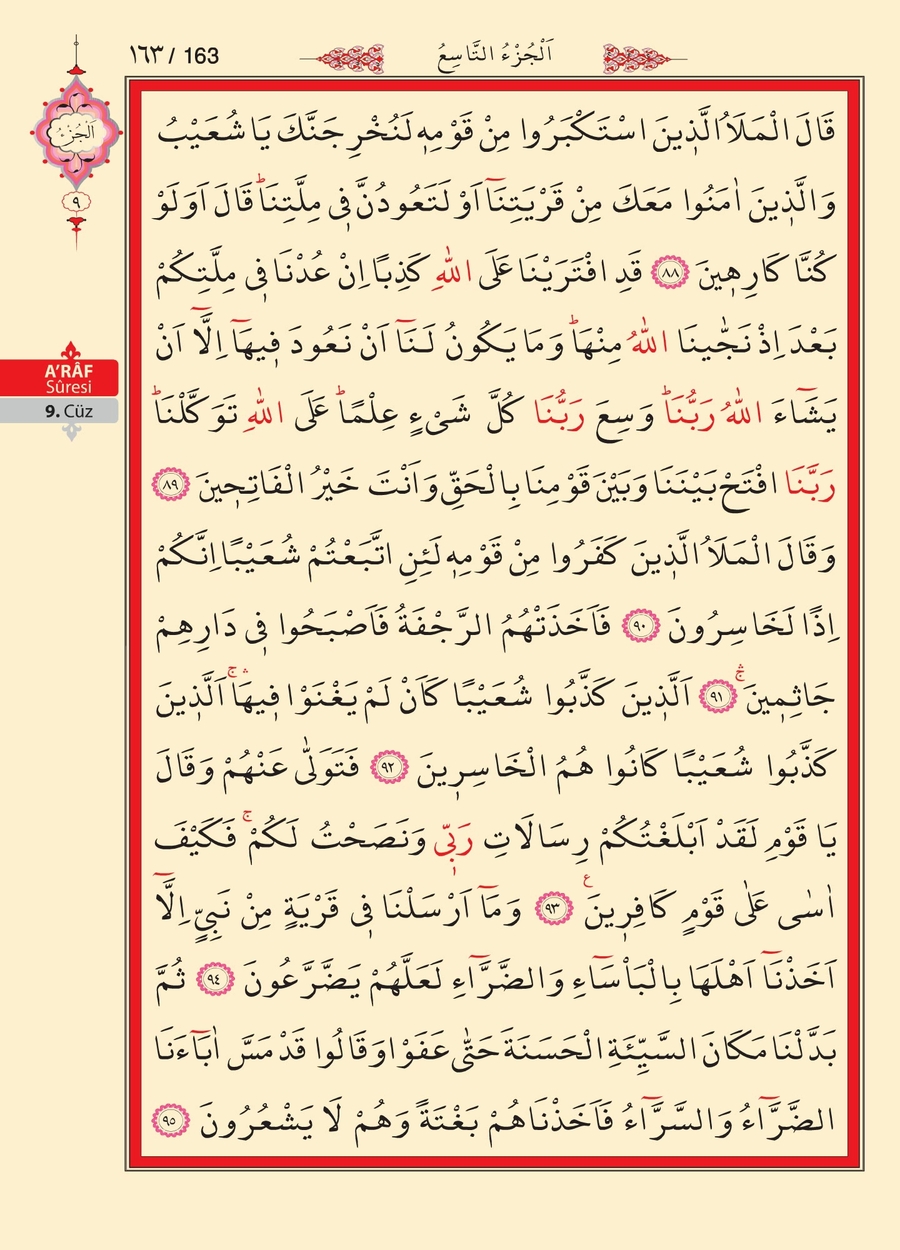 ١٦٣ / 163
اَلْجُزْءُ التَّاسِعُ
اَلْجُزْءُ
٩
A’RÂF
Sûresi
9. Cüz
قَالَ الْمَلَاُ الَّذ۪ينَ اسْتَكْبَرُوا مِنْ قَوْمِه۪ لَنُخْرِجَنَّكَ يَا شُعَيْبُ
وَالَّذ۪ينَ اٰمَنُوا مَعَكَ مِنْ قَرْيَتِنَٓا اَوْ لَتَعُودُنَّ ف۪ي مِلَّتِنَاۜ قَالَ اَوَلَوْ
كُنَّا كَارِه۪ينَ ﴿٨٨﴾ قَدِ افْتَرَيْنَا عَلَى اللّٰهِ كَذِبًا اِنْ عُدْنَا ف۪ي مِلَّتِكُمْ
بَعْدَ اِذْ نَجّٰينَا اللّٰهُ مِنْهَاۜ وَمَا يَكُونُ لَنَٓا اَنْ نَعُودَ ف۪يهَٓا اِلَّٓا اَنْ
يَشَٓاءَ اللّٰهُ رَبُّنَاۜ وَسِعَ رَبُّنَا كُلَّ شَيْءٍ عِلْمًاۜ عَلَى اللّٰهِ تَوَكَّلْنَاۜ
رَبَّنَا افْتَحْ بَيْنَنَا وَبَيْنَ قَوْمِنَا بِالْحَقِّ وَاَنْتَ خَيْرُ الْفَاتِح۪ينَ ﴿٨٩﴾
وَقَالَ الْمَلَاُ الَّذ۪ينَ كَفَرُوا مِنْ قَوْمِه۪ لَئِنِ اتَّبَعْتُمْ شُعَيْبًا اِنَّكُمْ
اِذًا لَخَاسِرُونَ ﴿٩٠﴾ فَاَخَذَتْهُمُ الرَّجْفَةُ فَاَصْبَحُوا ف۪ي دَارِهِمْ
جَاثِم۪ينَۚۛ ﴿٩١﴾ اَلَّذ۪ينَ كَذَّبُوا شُعَيْبًا كَاَنْ لَمْ يَغْنَوْا ف۪يهَاۚۛ اَلَّذ۪ينَ
كَذَّبُوا شُعَيْبًا كَانُوا هُمُ الْخَاسِر۪ينَ ﴿٩٢﴾ فَتَوَلّٰى عَنْهُمْ وَقَالَ
يَا قَوْمِ لَقَدْ اَبْلَغْتُكُمْ رِسَالَاتِ رَبّ۪ي وَنَصَحْتُ لَكُمْۚ فَكَيْفَ
اٰسٰى عَلٰى قَوْمٍ كَافِر۪ينَ۟ ﴿٩٣﴾ وَمَٓا اَرْسَلْنَا ف۪ي قَرْيَةٍ مِنْ نَبِيٍّ اِلَّٓا
اَخَذْنَٓا اَهْلَهَا بِالْبَاْسَٓاءِ وَالضَّرَّٓاءِ لَعَلَّهُمْ يَضَّرَّعُونَ ﴿٩٤﴾ ثُمَّ
بَدَّلْنَا مَكَانَ السَّيِّئَةِ الْحَسَنَةَ حَتّٰى عَفَوْا وَقَالُوا قَدْ مَسَّ اٰبَٓاءَنَا
الضَّرَّٓاءُ وَالسَّرَّٓاءُ فَاَخَذْنَاهُمْ بَغْتَةً وَهُمْ لَا يَشْعُرُونَ ﴿٩٥﴾